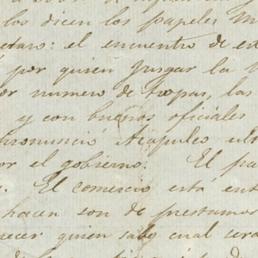 los dicen los papeles
claro: el encuentro de es
por quien juzgar la
or numero de tropas, las
y con buenos oficiales
Pronunció Acapulco
or el gobierno. El pa
El comercio esta en
hacen son de prestamos
ecer quien sabe cual sera